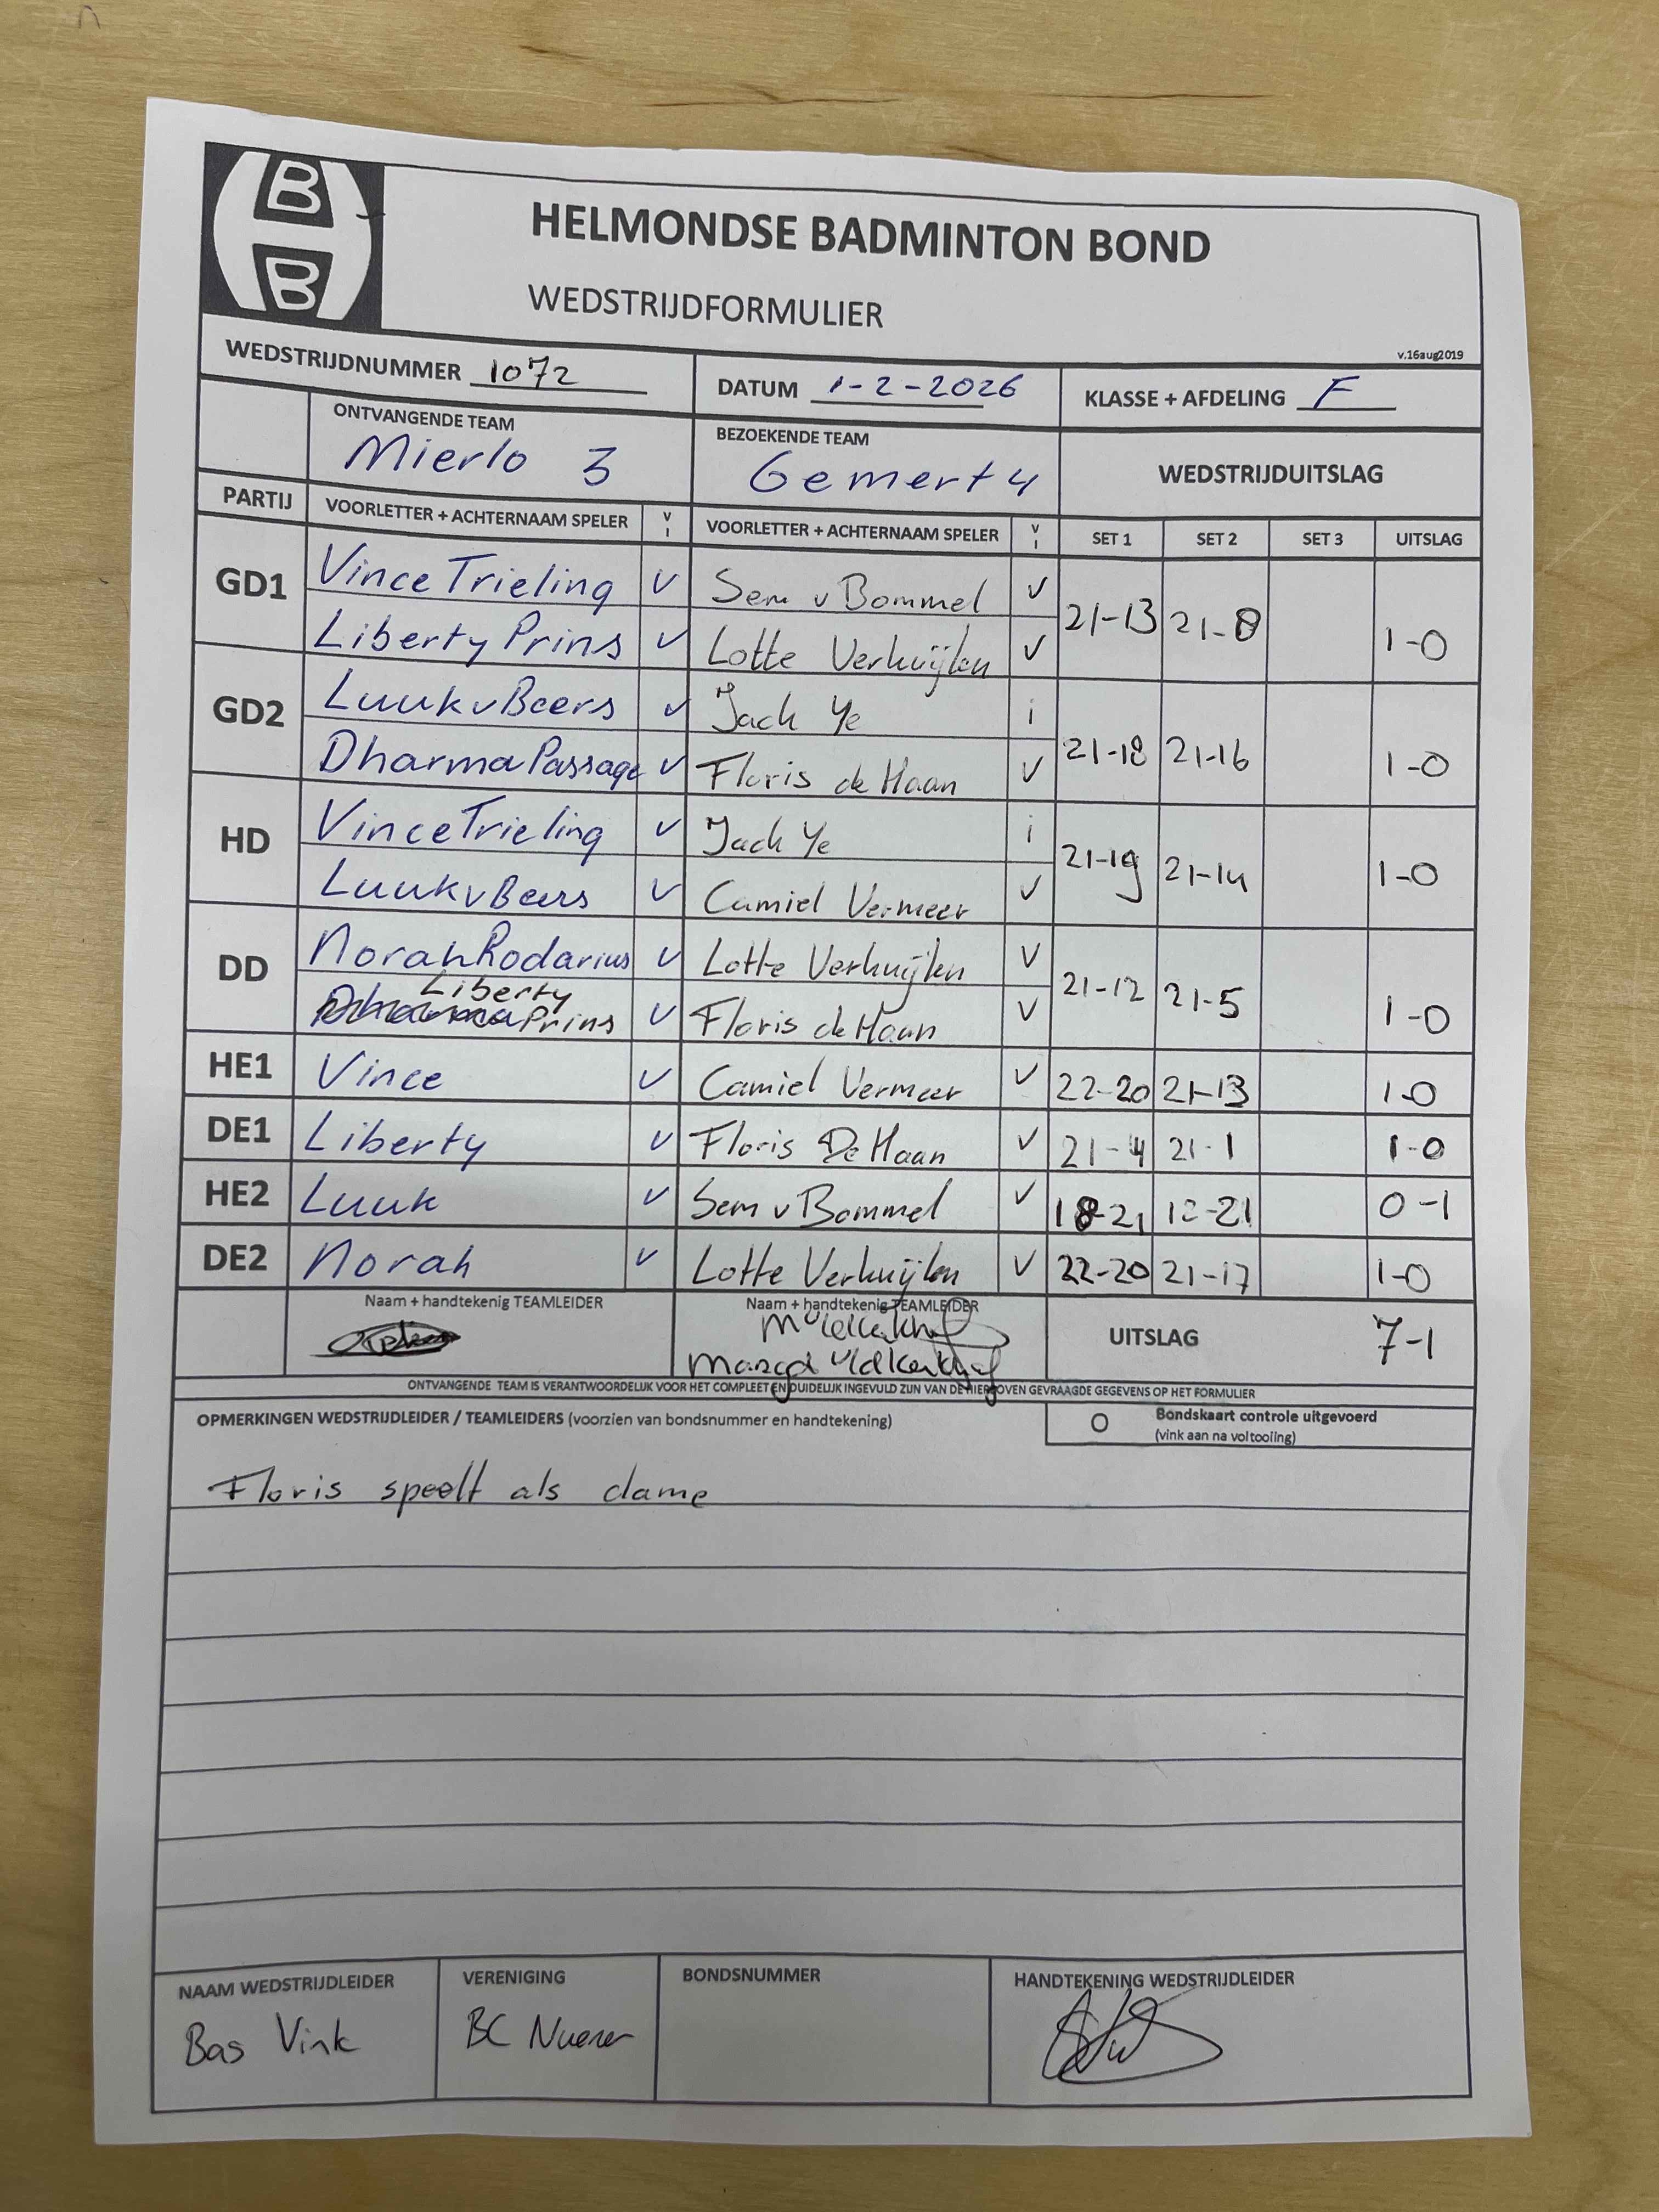 B
B
HELMONDSE BADMINTON BOND
WEDSTRIJDFORMULIER
v.16aug2019
WEDSTRIJDNUMMER 1072 DATUM 1-2-2026 KLASSE + AFDELING F
ONTVANGENDE TEAM BEZOEKENDE TEAM
Mierlo 3 Gemert 4 WEDSTRIJDUITSLAG
PARTIJ VOORLETTER + ACHTERNAAM SPELER V I VOORLETTER + ACHTERNAAM SPELER V I SET 1 SET 2 SET 3 UITSLAG
GD1 Vince Trieling v Sem v Bommel v 21-13 21-8 1-0
Liberty Prins v Lotte Verkuijlen v
GD2 Luuk v Beers v Jack Ye i 21-18 21-16 1-0
Dharma Passage v Floris de Haan v
HD Vince Trieling v Jack Ye i 21-19 21-14 1-0
Luuk v Beers v Camiel Vermeer v
DD Norah Rodarius v Lotte Verkuijlen v 21-12 21-5 1-0
Liberty
Prins v Floris de Haan v
HE1 Vince v Camiel Vermeer v 22-20 21-13 1-0
DE1 Liberty v Floris De Haan v 21-4 21-1 1-0
HE2 Luuk v Sem v Bommel v 18-21 -21 0-1
DE2 Norah v Lotte Verkuijlen v 22-20 21-17 1-0
Naam + handtekenig TEAMLEIDER Naam + handtekenig TEAMLEIDER
UITSLAG 7-1
ONTVANGENDE TEAM IS VERANTWOORDELIJK VOOR HET COMPLEET EN DUIDELIJK INGEVULD ZIJN VAN DE HIERBOVEN GEVRAAGDE GEGEVENS OP HET FORMULIER
OPMERKINGEN WEDSTRIJDLEIDER / TEAMLEIDERS (voorzien van bondsnummer en handtekening) O Bondskaart controle uitgevoerd
(vink aan na voltooiing)
Floris speelt als dame
NAAM WEDSTRIJDLEIDER VERENIGING BONDSNUMMER HANDTEKENING WEDSTRIJDLEIDER
Bas Vink BC Nuenen